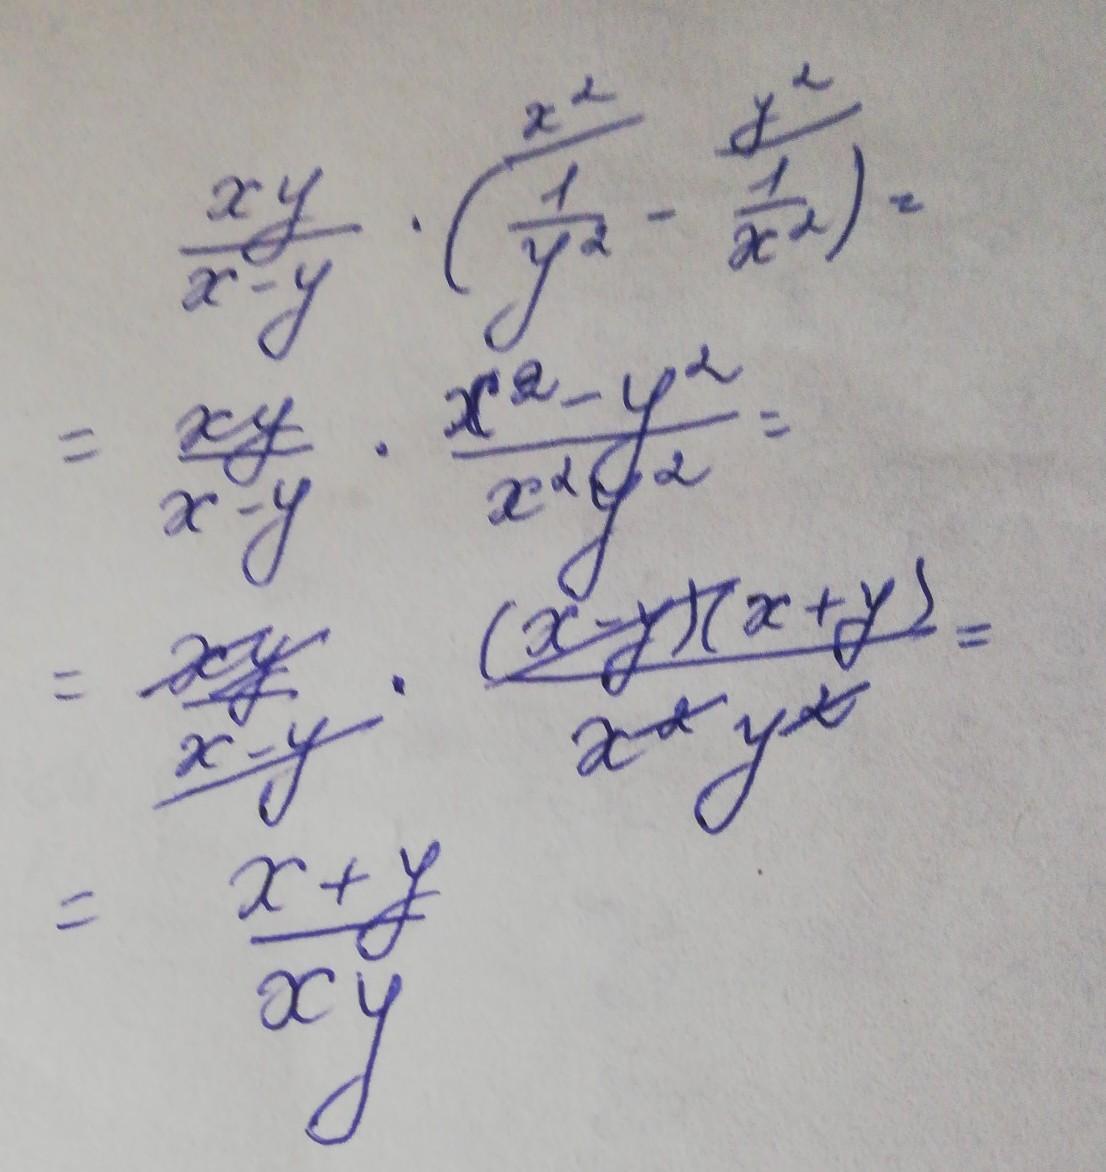 xy/(x-y) · (x²⟋ 1/y² - y²⟋ 1/x²) =
= xy/(x-y) · (x²-y²)/(x²y²) =
= xy/(x-y) · (x-y)(x+y)/(x²y²) =
= (x+y)/(xy)